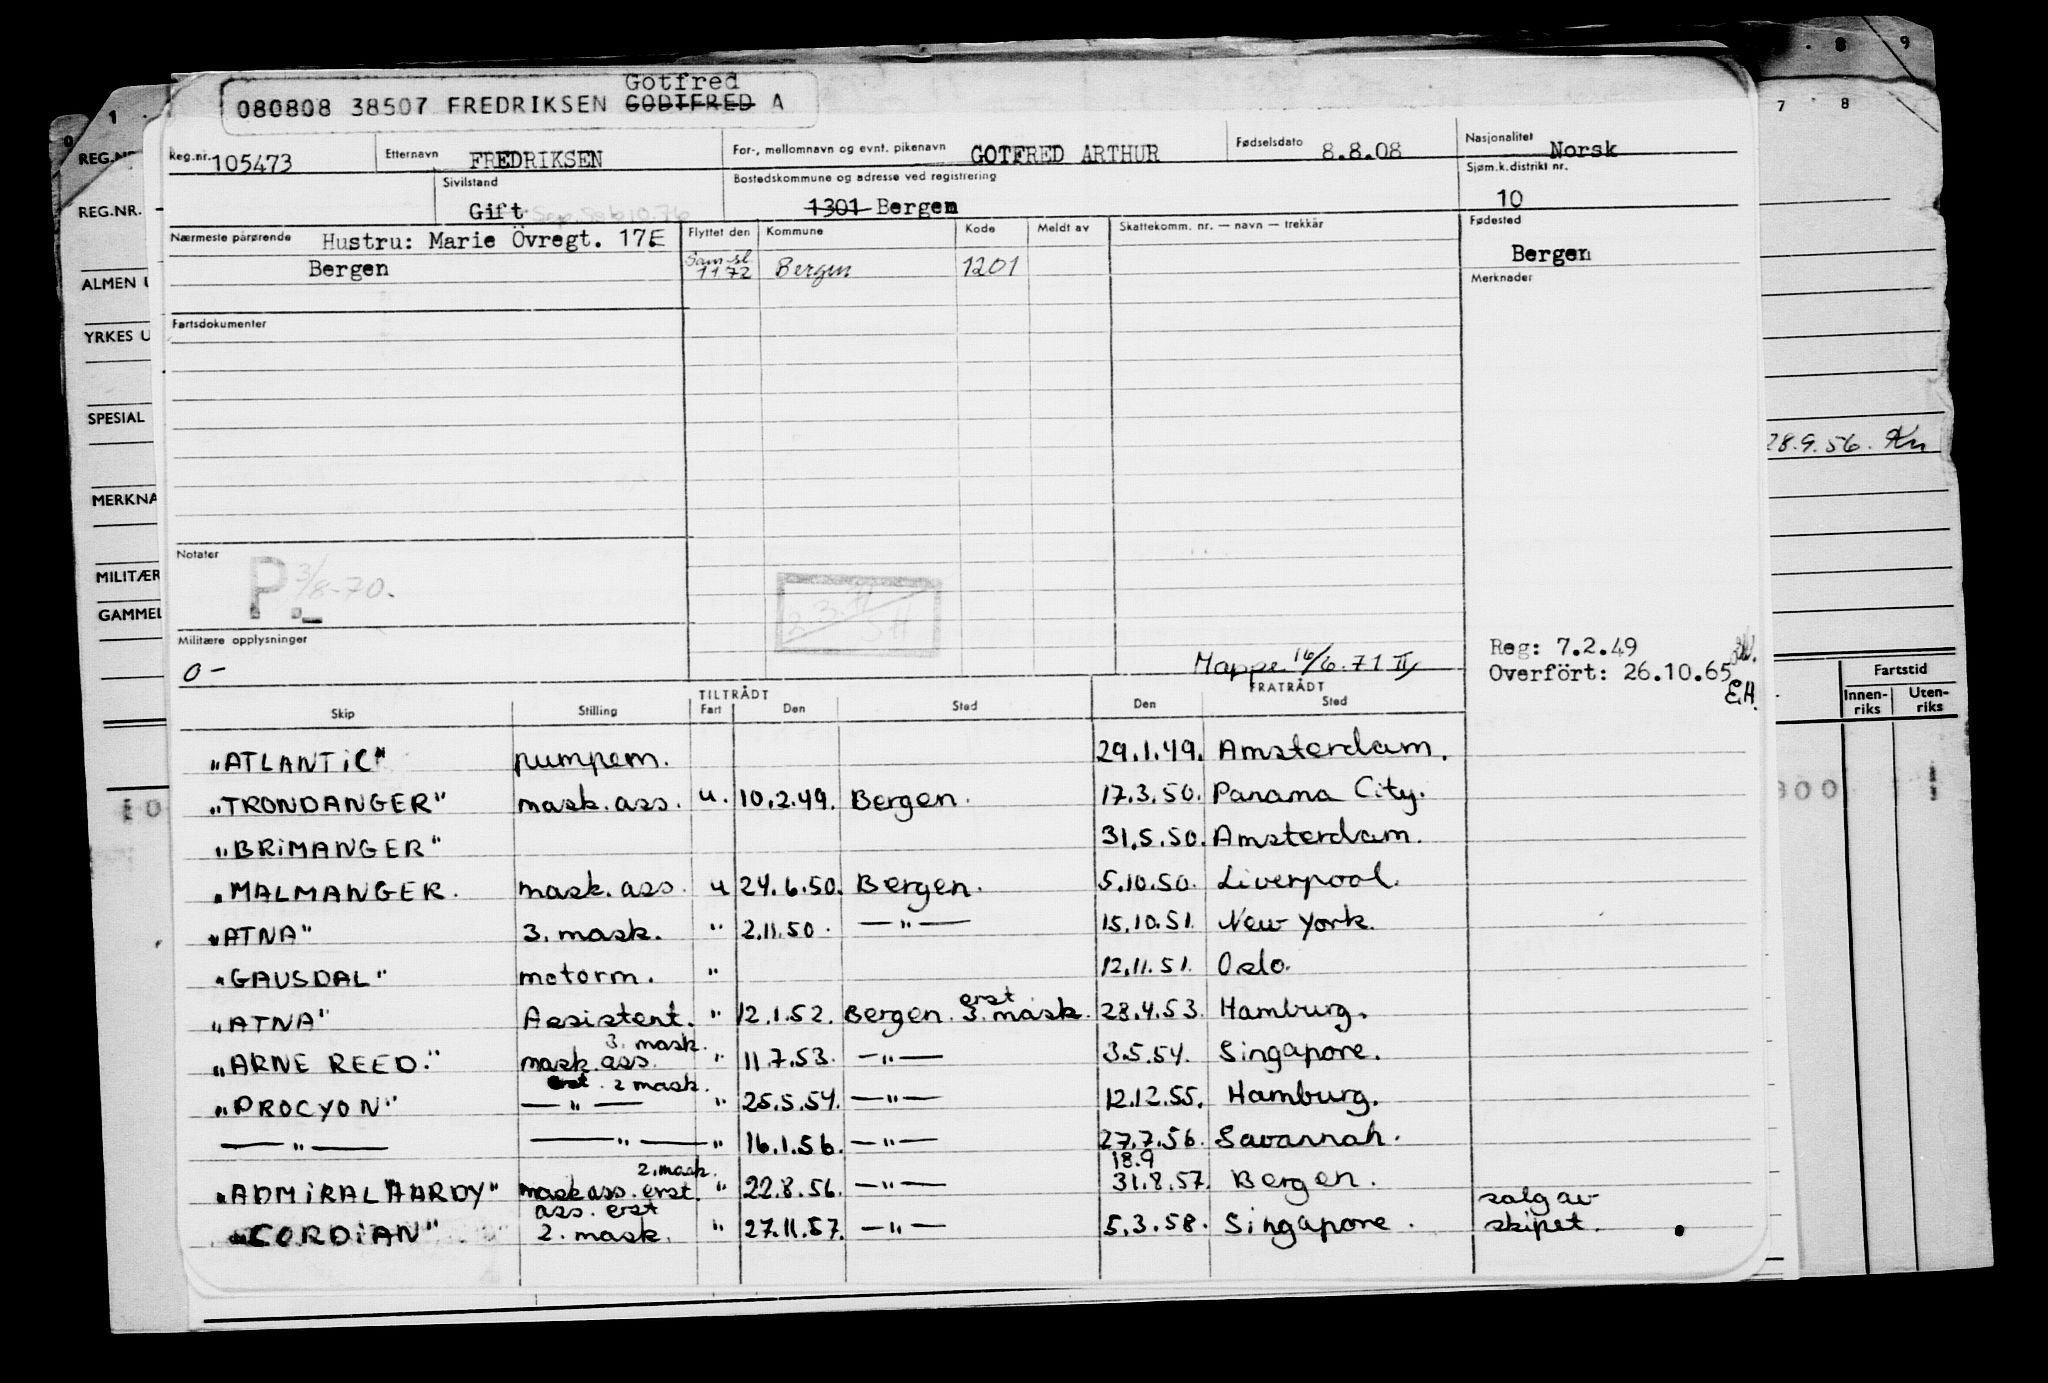 Gotfred
080808 38507 FREDRIKSEN GODTFRED A
Reg.nr. 105473 Etternavn FREDRIKSEN For-, mellomnavn og evnt. pikenavn GOTFRED ARTHUR Fødselsdato 8.8.08 Nasjonalitet Norsk
Sivilstand Gift Bostedskommune og adresse ved registrering 1301 Bergen Sjøm.k.distrikt nr. 10
Nærmeste pårørende Hustru: Marie Övregt. 17E Flyttet den Kommune Kode Meldt av Skattekomm. nr. — navn — trekkår Fødested
Bergen Sam.sl. 1172 Bergen 1201 Bergen
Merknader
Fartsdokumenter
Notater
P. 3/8-70.
Militære opplysninger
0 -
Mappe 16/6.71 II
Reg: 7.2.49
Overfört: 26.10.65
E.H.
TILTRÅDT FRATRÅDT
Skip Stilling Fart Den Sted Den Sted
"ATLANTIC" pumpem. 29.1.49. Amsterdam.
"TRONDANGER" mask. ass. u. 10.2.49. Bergen. 17.3.50. Panama City.
"BRIMANGER" 31.5.50. Amsterdam.
"MALMANGER. mask. ass. u 24.6.50. Bergen. 5.10.50. Liverpool.
"ATNA" 3. mask. " 2.11.50. — " — 15.10.51. New York.
"GAUSDAL" motorm. " 12.11.51. Oslo.
"ATNA" Assistent. " 12.1.52. Bergen. erst 3. mask. 28.4.53. Hamburg.
3. mask.
"ARNE REED." mask. ass. " 11.7.53. — " — 3.5.54. Singapore.
erst. 2 mask.
"PROCYON" — " — " 25.5.54. — " — 12.12.55. Hamburg.
— " — — " — " 16.1.56. — " — 27.7.56. Savannah.
2. mask. 18.9
"ADMIRAL HARDY" mask ass. erst. " 22.8.56. — " — 31.8.57. Bergen.
ass. erst salg av
"CORDIAN" 2. mask. " 27.11.57. — " — 5.3.58. Singapore. skipet.
1
REG.NR.
REG.NR.
ALMEN U
YRKES U
SPESIAL
MERKNA
MILITÆR
GAMMEL
8 9
7 8
28.9.56. Kn
Fartstid
Innen-riks Uten-riks